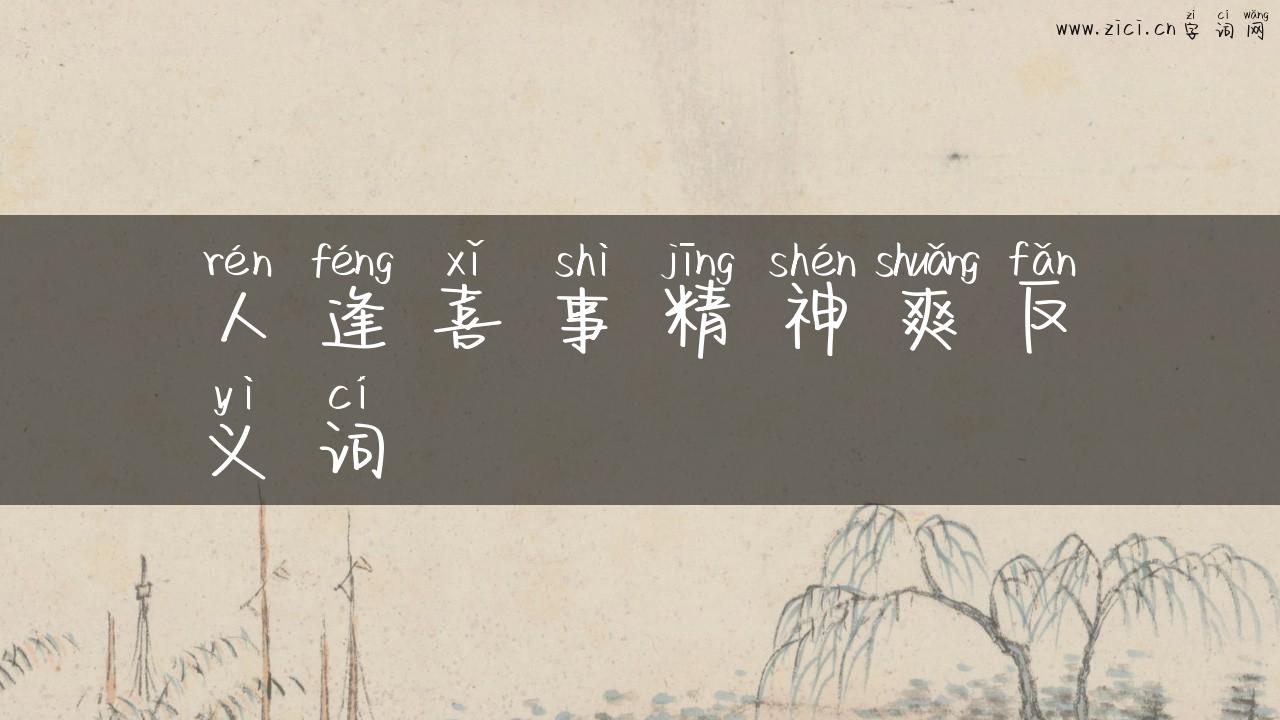 zì cí wǎng
www.zici.cn 字词网
rén féng xǐ shì jīng shén shuǎng fǎn
人逢喜事精神爽反
yì cí
义词